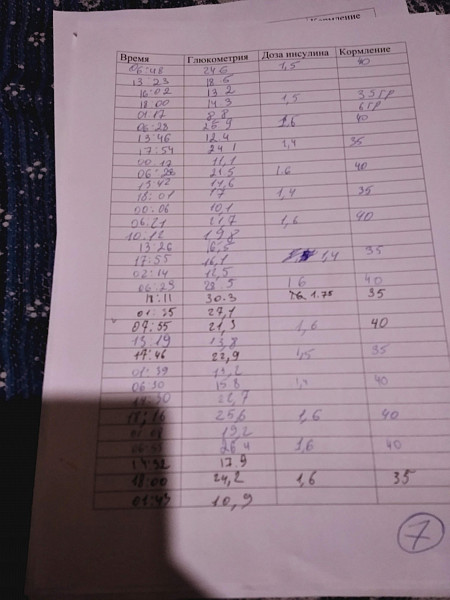 Кормление
Время Глюкометрия Доза инсулина Кормление
06:48 24.6 1,5 40
13:23 18.6
16:02 13.2
18:00 14.3 1,5 35 гр
01:17 8.8 6 гр
06:28 25.9 1.6 40
13:46 12.4
17:54 24.1 1,4 35
00:17 11,1
06:28 21.5 1.6 40
13:42 11,6
18:01 17 1,4 35
00:06 10,1
06:21 21,7 1,6 40
10:12 19.8
13:26 16,5
17:55 16,1 1,4 35
02:14 12,5
06:29 23.5 1.6 40
18:11 30.3 1.75 35
01:35 27,1
07:55 21,3 1,6 40
13:19 13,8
17:46 22,9 1,5 35
01:39 13,2
06:30 15.8 40
22,7
25,6 1,6 40
19,2
26.4 1,6 40
14:32 17.9
18:00 24,2 1,6 35
01:43 10,9
7